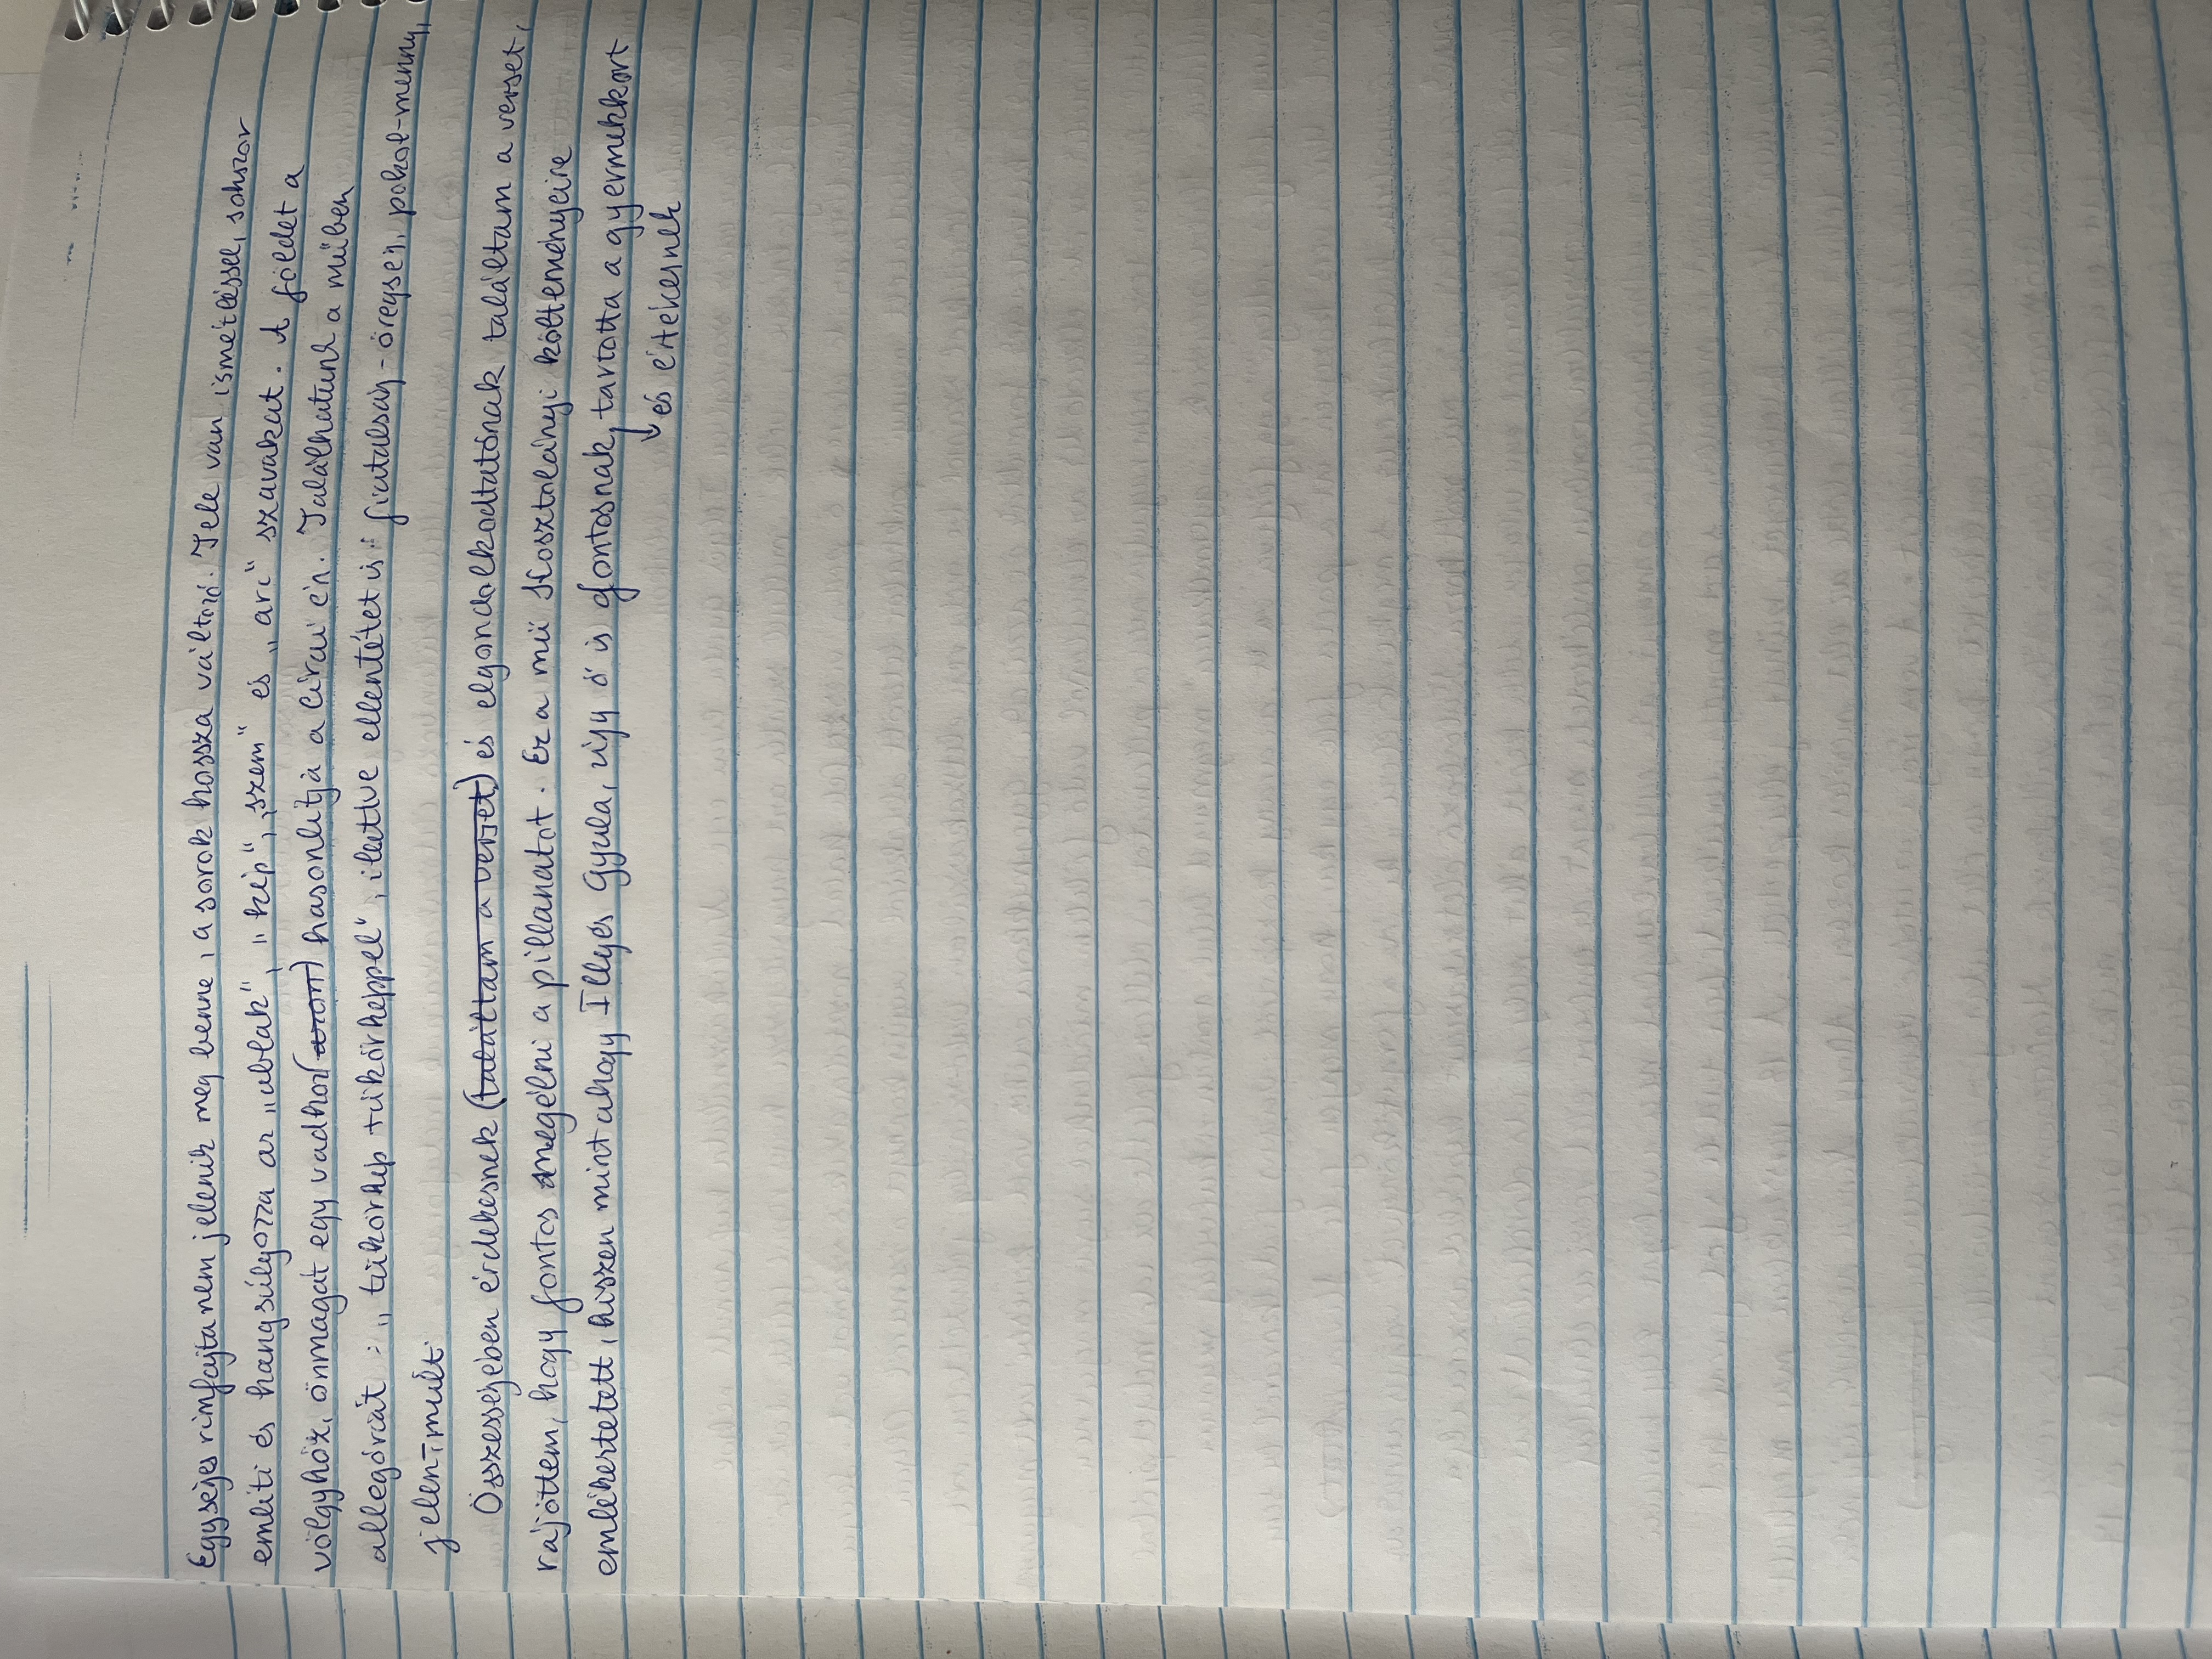 Egységes rímfajta nem jelenik meg benne, a sorok hossza változó. Tele van ismétléssel, sokszor
említi és hangsúlyozza az „ablak", „kép", „szem" és „arc" szavakat. A földet a
völgyhöz, önmagát egy vadhoz (azon) hasonlítja a lírai én. Találhatunk a műben
allegóriát: „tükörkép tükörképpel", illetve ellentétet is: fiatalság-öregség, pokol-menny,
jelen-múlt.
Összességében érdekesnek (találtam a verset) és elgondolkodtatónak találtam a verset,
rájöttem, hogy fontos megélni a pillanatot. Ez a mű Kosztolányi költeményeire
emlékeztetett, hiszen mint ahogy Illyés Gyula, úgy ő is fontosnak, tartotta a gyermekkort
↓ és értékesnek